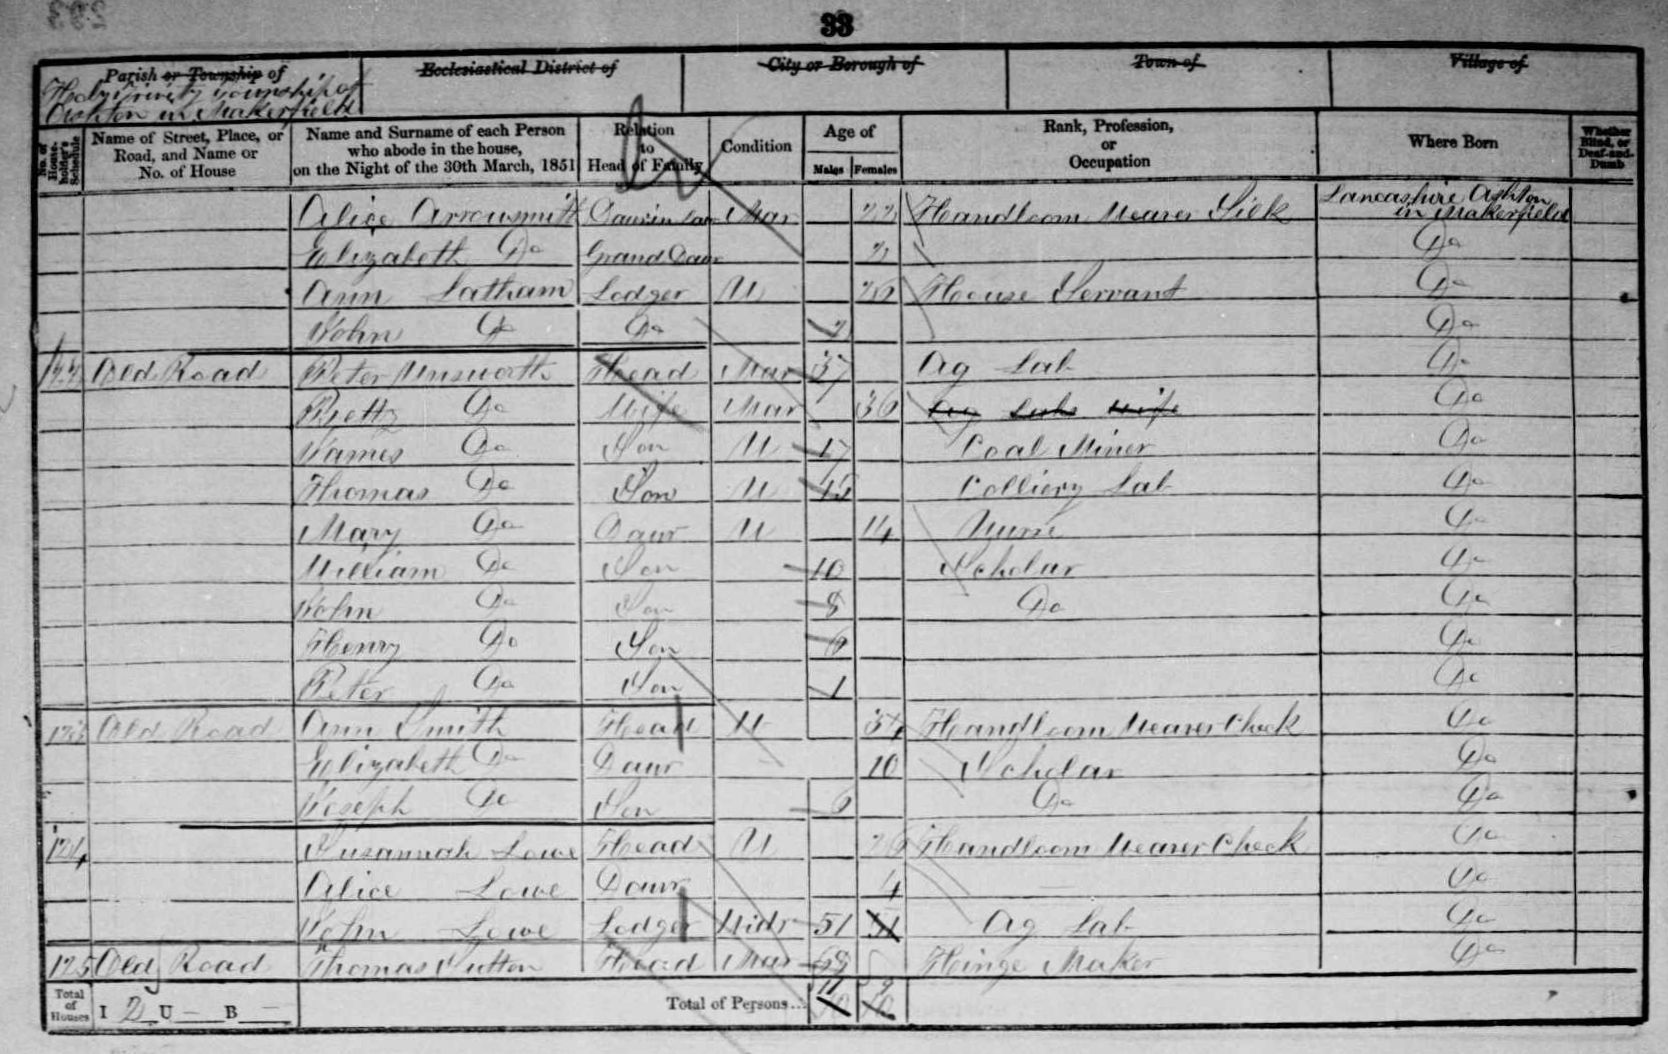 33
Parish or Township of
Ecclesiastical District of
City or Borough of
Town of
Village of
Holy Trinity Township of
Ashton in Makerfield
No. of House-holder's Schedule
Name of Street, Place, or Road, and Name or No. of House
Name and Surname of each Person who abode in the house, on the Night of the 30th March, 1851
Relation to Head of Family
Condition
Age of
Males
Females
Rank, Profession, or Occupation
Where Born
Whether Blind, or Deaf-and-Dumb
Alice Arrowsmith Daur in Law Mar 22 Handloom Weaver Silk Lancashire Ashton in Makerfield
Elizabeth Do Grand Daur 2 Do
Ann Latham Lodger U 26 House Servant Do
John Do Do 2 Do
122 Old Road Peter Unsworth Head Mar 37 Ag Lab Do
Betty Do Wife Mar 36 Ag Labs Wife Do
James Do Son U 17 Coal Miner Do
Thomas Do Son U Colliery Lab Do
Mary Do Daur U 14 Nurse Do
William Do Son 10 Scholar Do
John Do Son 8 Do Do
Henry Do Son 6 Do
Peter Do Son 1 Do
123 Old Road Ann Smith Head U 34 Handloom Weaver Check Do
Elizabeth Do Daur 10 Scholar Do
Joseph Do Son 6 Do Do
124 Susannah Lowe Head U 26 Handloom Weaver Check Do
Alice Lowe Daur 4 Do
John Lowe Lodger Widr 51 51 Ag Lab Do
125 Old Road Thomas Sutton Head Mar Hinge Maker Do
Total of Houses I 2 U – B –
Total of Persons... 11 10 9 10